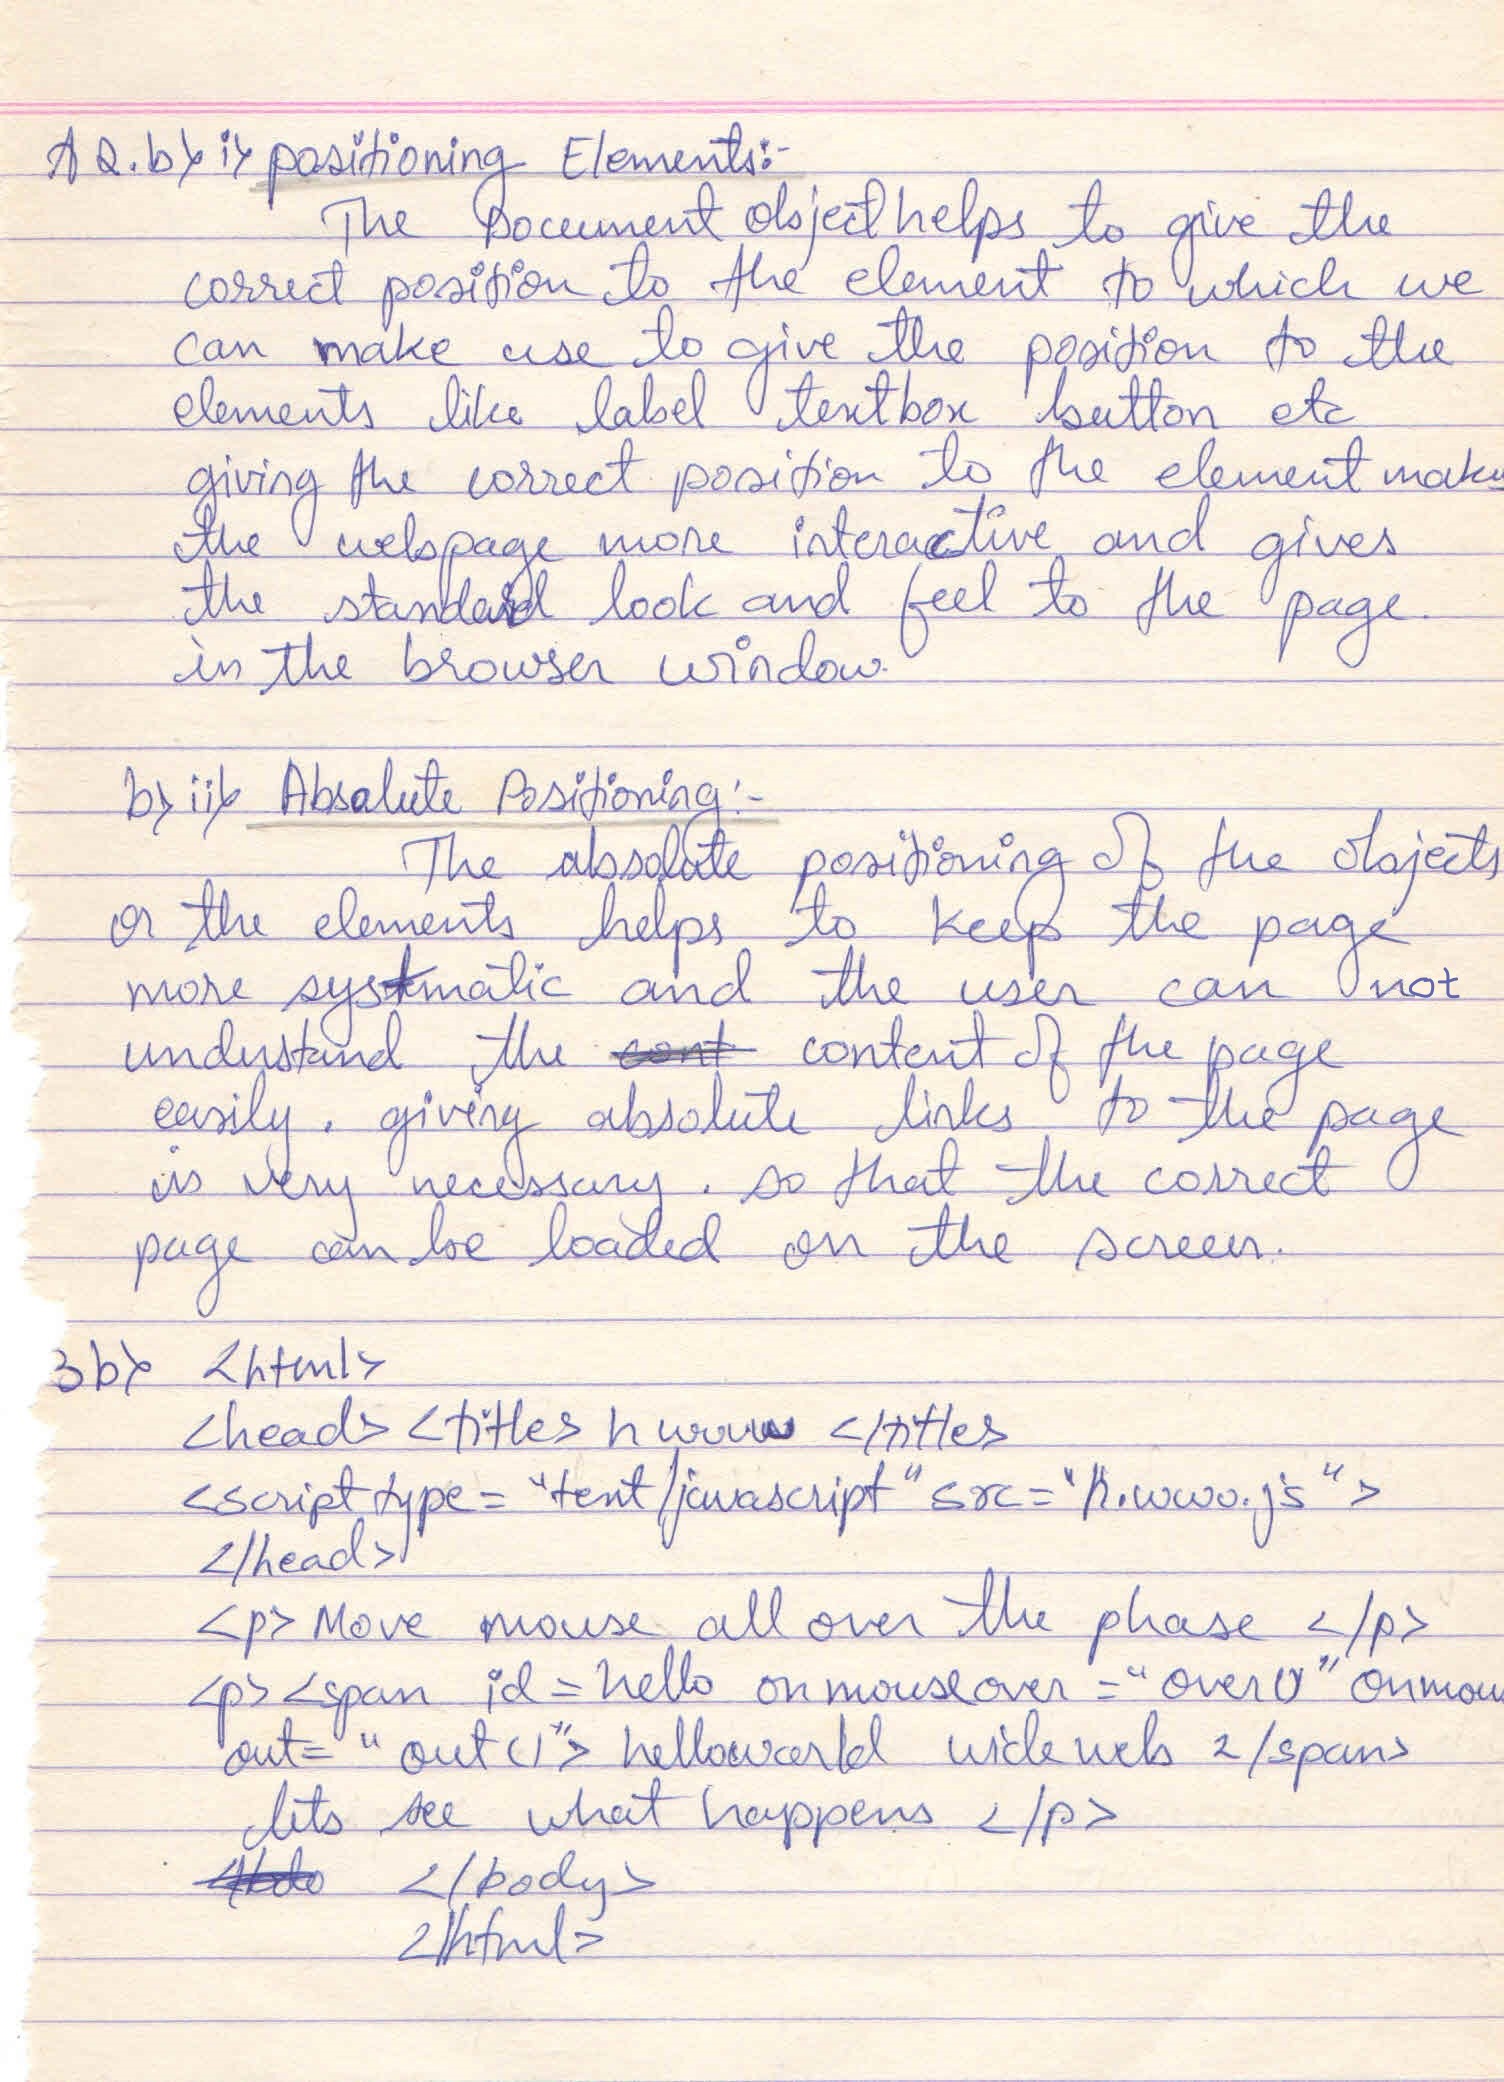 A 2. b) i) positioning Elements:-
The Document object helps to give the
correct position to the element to which we
can make use to give the position to the
elements like label textbox button etc
giving the correct position to the element makes
the webpage more interactive and gives
the standard look and feel to the page.
in the browser window.
b) ii) Absolute Positioning:-
The absolute positioning of the objects
or the elements helps to keep the page
more systmatic and the user can not
understand the cont content of the page
easily. giving absolute links to the page
is very necessary. so that the correct
page can be loaded on the screen.
3b) <html>
<head> <title> h www </title>
<script type = "text/javascript" src = "h.www.js">
</head>
<p> Move mouse all over the phase </p>
<p> <span id = hello onmouseover = "over()" onmou
out = "out()"> helloworld wide web </span>
lets see what happens </p>
</body>
</html>